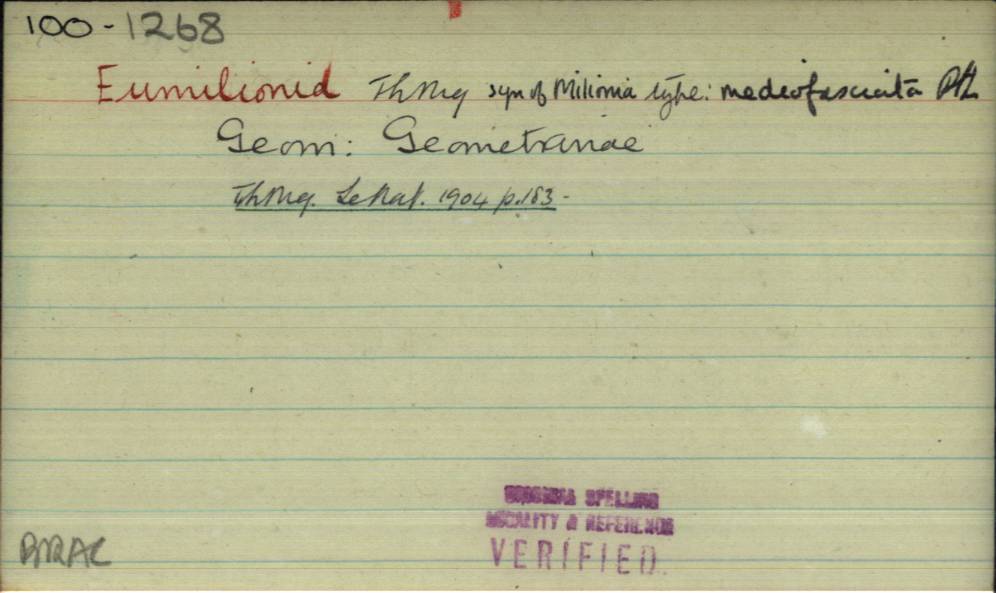 100-1268
Eumilionid Th Mg syn of Milionia type: mediofasciata
Geom: Geometrinae
Th Mg. Le Nat. 1904 p.183-
ORIGINAL SPELLING
LOCALITY & REFERENCE
VERIFIED.